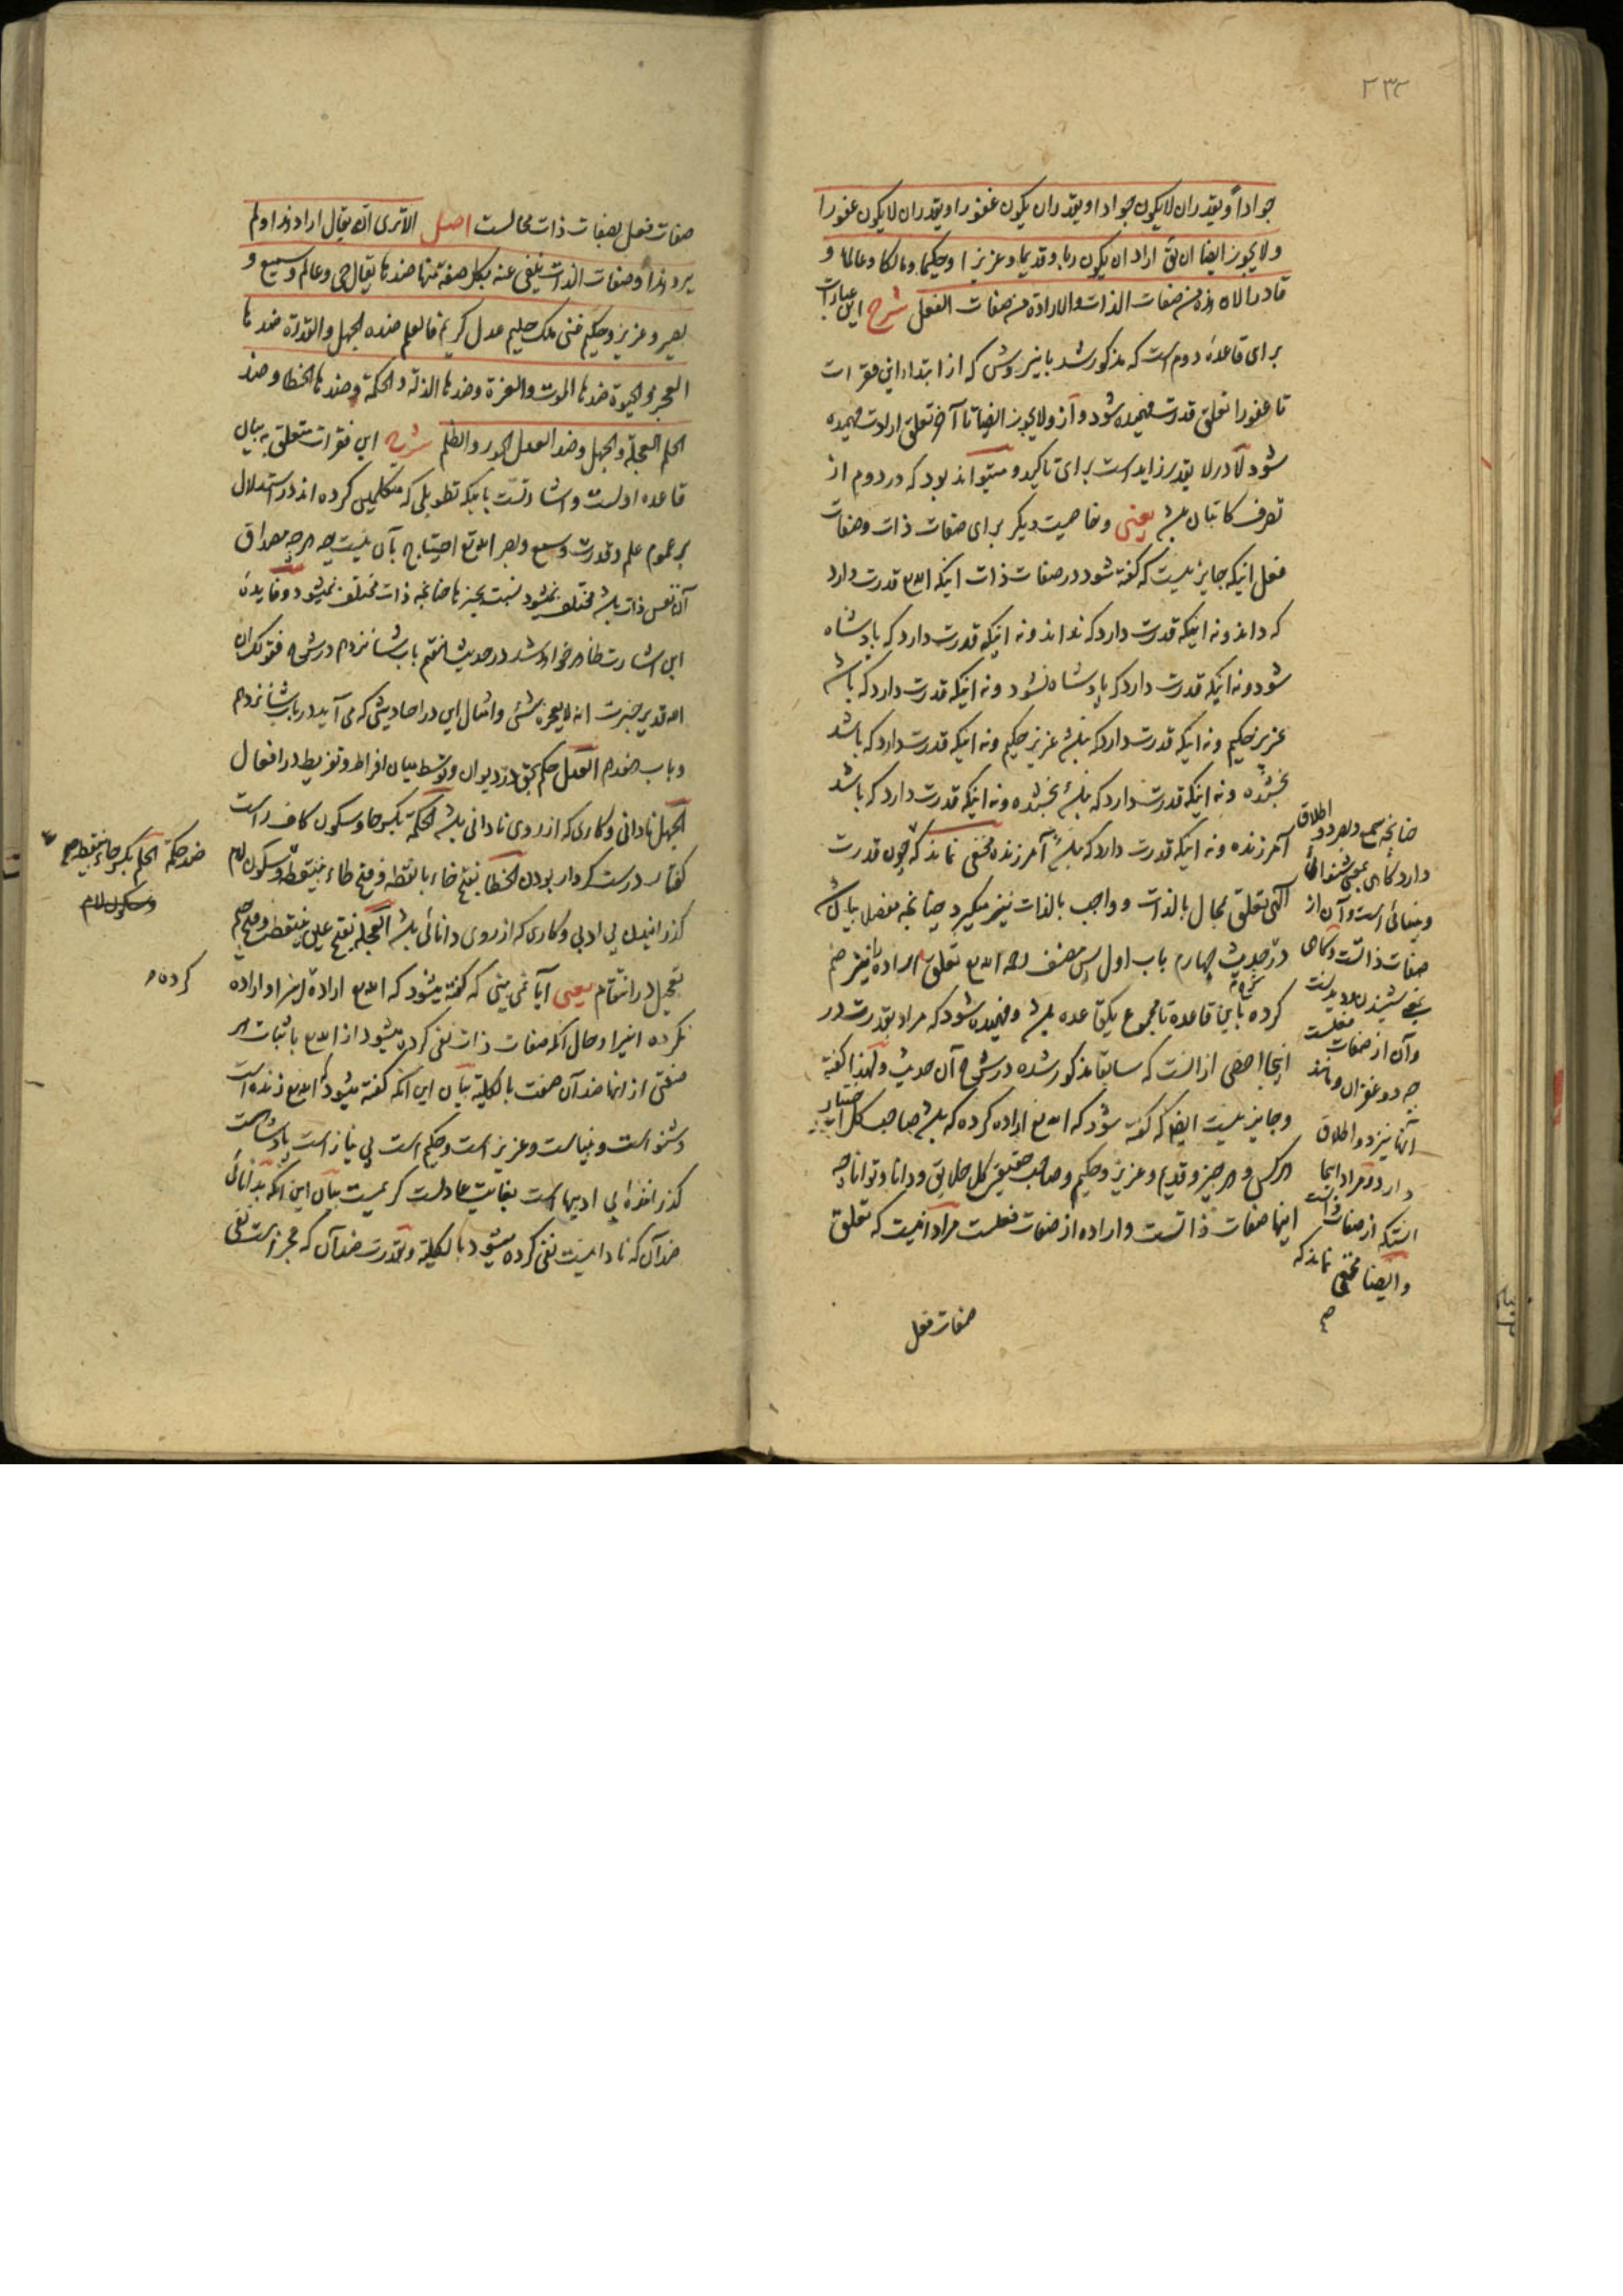 ۲۳۲
جواداً و یقدر ان لا یکون جوادا و یقدر ان یکون غفورا و یقدر ان لا یکون غفورا
و لا یجوز ایضا ان یق اراد ان یکون ربا و قدیما و عزیزا و حکیما و مالکا و عالما و
قادرا لان هذه من صفات الذات و الارادة من صفات الفعل شرح این عبارات
برای قاعدهٔ دوم است که مذکور شد باینروش که از ابتداء این فقرات
تا غفورا تعلق قدرت فهمیده شود و از و لا یجوز ایضا تا آخر تعلق ارادت فهمیده
شود لا در لا یقدر زاید است برای تاکید و میتواند بود که در دوم از
تصرف کاتبان باشد یعنی و خاصیت دیگر برای صفات ذات و صفات
فعل اینکه جایز نیست که گفته شود در صفات ذات اینکه الله تع قدرت دارد
که داند و نه اینکه قدرت دارد که نداند و نه اینکه قدرت دارد که پادشاه
شود و نه اینکه قدرت دارد که پادشاه نشود و نه اینکه قدرت دارد که باشد
عزیز حکیم و نه اینکه قدرت دارد که نباشد عزیز حکیم و نه اینکه قدرت دارد که باشد
بخشنده و نه اینکه قدرت دارد که نباشد بخشنده و نه اینکه قدرت دارد که باشد
آمرزنده و نه اینکه قدرت دارد که نباشد آمرزنده مخفی نماند که چون قدرت
الهی تعلق بمحال بالذات و واجب بالذات نیز میگیرد چنانچه مفصل بیان شد
در شرح حدیث چهارم باب اول پس مصنف رحمه الله تع تعلق اراده را نیز ضم
کرده باین قاعده تا مجموع یکقاعده باشد و فهمیده شود که مراد بقدرت در
اینجا اخص از آنست که سابقا مذکور شده در شرح آن حدیث و لهذا گفته
و جایز نیست ایضا که گفته شود که الله تع اراده کرده که باشد صاحب کل اختیار
هر کس و هر چیز و قدیم و عزیز و حکیم و صاحب حقیقی کل خلایق و دانا و توانا چه
اینها صفات ذاتست و اراده از صفات فعلست مراد اینست که تعلق
صفات فعل
چنانچه سمع و بصر دو اطلاق
دارد گاهی بمعنی شنوائی
و بینائی است و آن از
صفات ذاتست و گاهی
بمعنی شنیدن و دیدنست
و آن از صفات فعلست
چه دو غفران و مانند
آنها نیز دو اطلاق
دارد و مراد اینجا
آنستکه از صفات ذاتست
و ایضا مخفی نماند که
صفات فعل بصفات ذات محالست اصل الا تری انه یقال اراد هذا و لم
یرد هذا و صفات الذات ینفی عنه بکل صفة منها ضدها یقال حی و عالم و سمیع و
بصیر و عزیز و حکیم غنی ملک حلیم عدل کریم فالعلم ضده الجهل و القدرة ضدها
العجز و الحیوة ضدها الموت و العزة و ضدها الذلة و الحکمة و ضدها الخطا و ضد
الحلم العجلة و الجهل و ضد العدل الجور و الظلم شرح این فقرات متعلق به بیان
قاعده اولست و اشارتست باینکه تطویلی که متکلمین کرده اند در استدلال
بر عموم علم و قدرت و سمع و بصر الله تع احتیاج بآن نیست چه هر چه مصداق
آن نفس ذات باشد مختلف نمیشود نسبت بچیزها چنانچه ذات مختلف نمیشود و فایدهٔ
این اشارت ظاهر خواهد شد در حدیث هفتم باب شانزدهم در شرح فقولک ان
الله قدیر خبرت انه لا یعجزه شئ و امثال این در احادیثی که می آید در باب شانزدهم
و باب هفدهم العدل حکم بحق در دیوان و توسط میان افراط و تفریط در افعال
الجهل نادانی و کاری که از روی نادانی باشد الحکمة بکسر حا و سکون کاف راست
گفتار درست کردار بودن الخطا بفتح خاء با نقطه و فتح طاء بینقطه
گذرانیدن بی ادبی و کاری که از روی دانائی باشد العجلة بفتح عین بینقطه و فتح جیم
تعجیل در انتقام یعنی آیا نمی بینی که گفته میشود که الله تع اراده این را و اراده
نکرده این را و حال آنکه صفات ذات نفی کرده میشود از الله تع باثبات هر
صفتی از آنها ضد آن صفت بالکلیة بیان این آنکه گفته میشود که الله تع زنده است
و شنواست و بیناست و عزیز است و حکیم است بی نیاز است پادشاهست
گذرانندهٔ بی ادبیها است بغایت عادلست کریمست بیان این آنکه بدانائی
ضد آن که نادانیست نفی کرده میشود بالکلیة و بقدرت ضد آن که عجز است نفی
ضد حکمة الحلم بکسر حاء بینقطه
و سکون لام
کرده